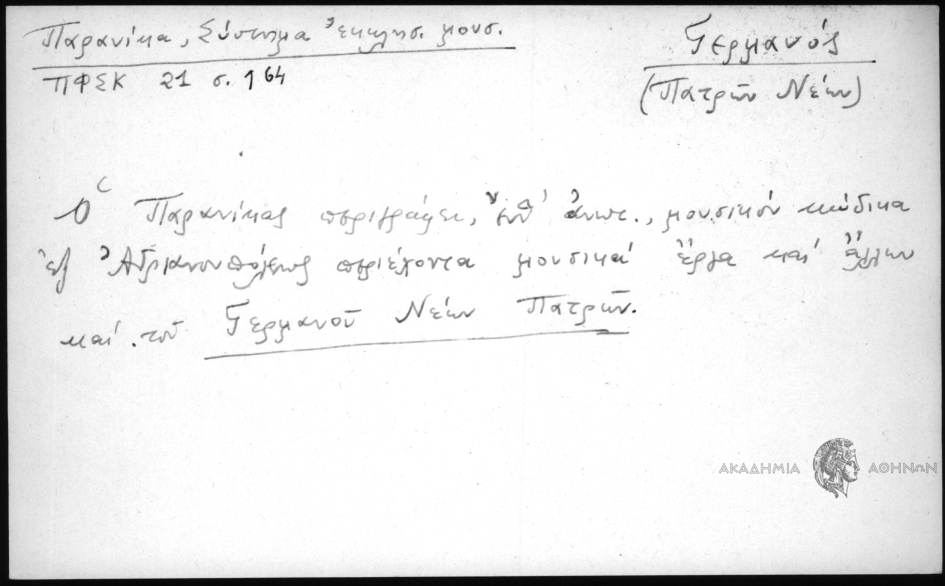 Παρανίκα, Σύστημα ἐκκλησ. μουσ.
ΠΦΣΚ 21 σ. 164
Γερμανός
(Πατρῶν Νέων)
Ὁ Παρανίκας περιγράφει, ἔνθ' ἀνωτ., μουσικόν κώδικα
ἐξ Ἀδριανουπόλεως περιέχοντα μουσικά ἔργα καί ἄλλων
καί τοῦ Γερμανοῦ Νέων Πατρῶν.
ΑΚΑΔΗΜΙΑ ΑΘΗΝΩΝ